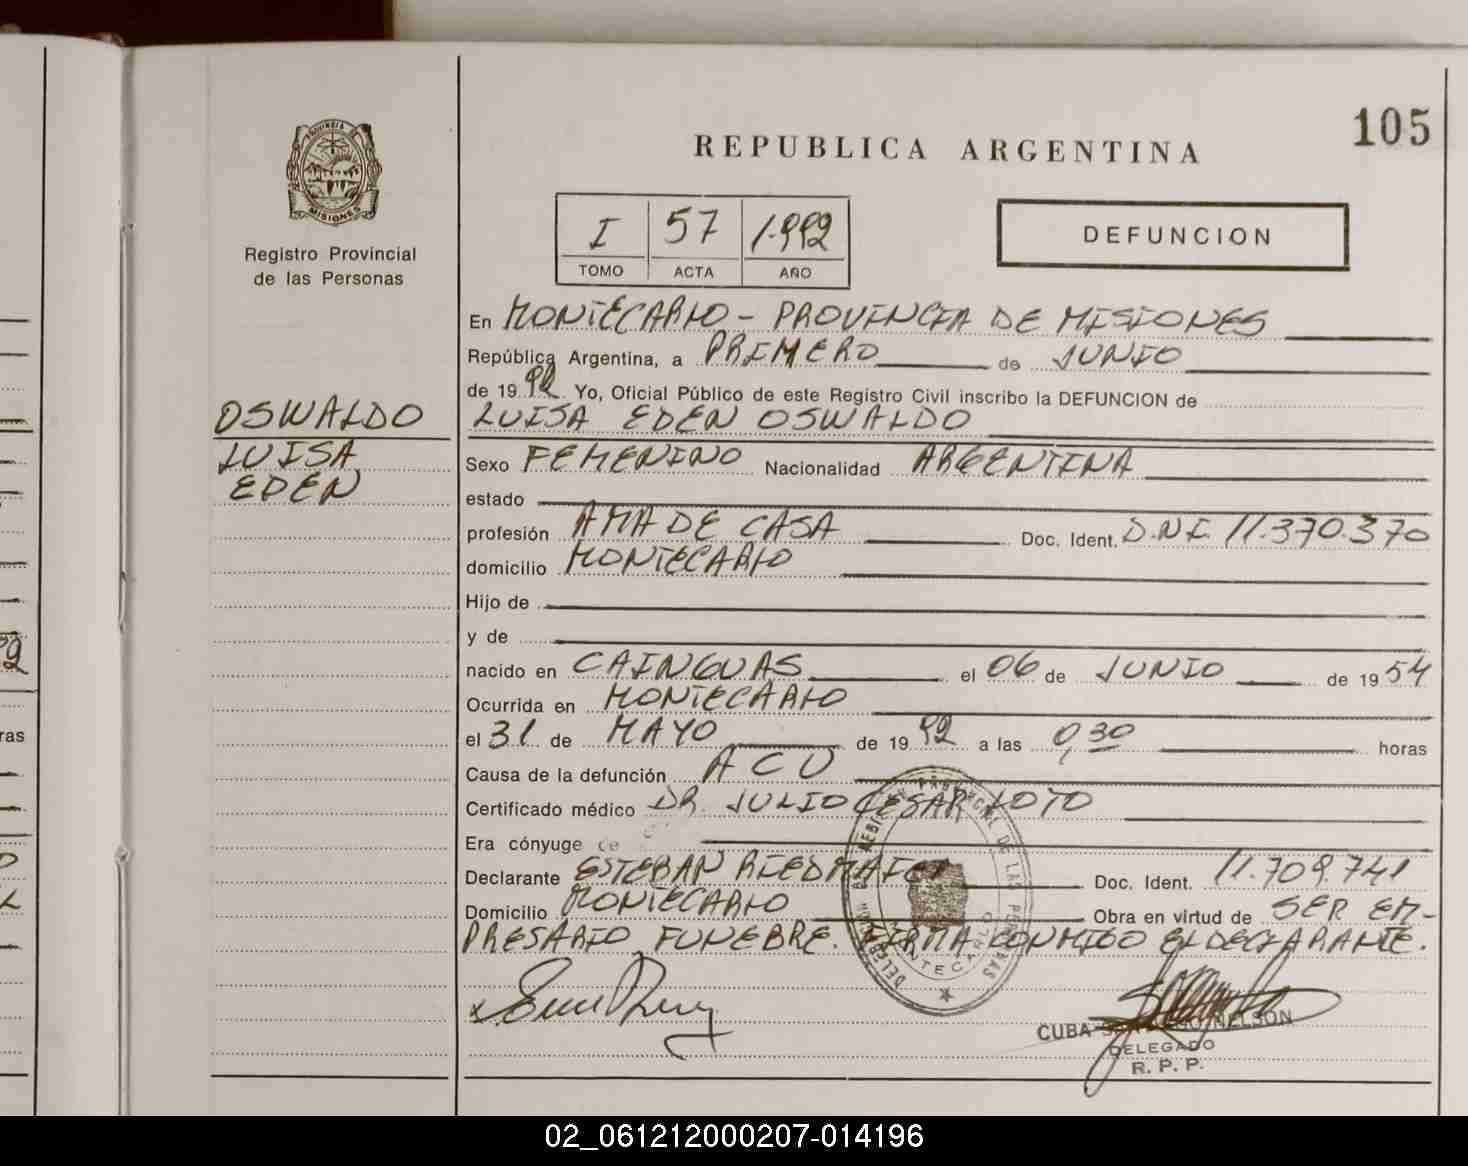 105
REPUBLICA ARGENTINA
PROVINCIA DE
MISIONES
Registro Provincial
de las Personas
I 57 1.992
TOMO ACTA AÑO
DEFUNCION
En MONTECARLO - PROVINCIA DE MISIONES
República Argentina, a PRIMERO de JUNIO
de 19 92 Yo, Oficial Público de este Registro Civil inscribo la DEFUNCION de
OSWALDO
LUISA
EDEN
LUISA EDEN OSWALDO
Sexo FEMENINO Nacionalidad ARGENTINA
estado
profesión AMA DE CASA Doc. Ident. D.N.I. 11.370.370
domicilio MONTECARLO
Hijo de
y de
nacido en CAINGUAS el 06 de JUNIO de 19 54
Ocurrida en MONTECARLO
el 31 de MAYO de 19 92 a las 0,30 horas
Causa de la defunción ACV
Certificado médico DR. JULIO CESAR LOTO
Era cónyuge de
Declarante ESTEBAN Doc. Ident. 11.709.741
Domicilio MONTECARLO Obra en virtud de SER EM-
PRESARIO FUNEBRE. FIRMA CONMIGO EL DECLARANTE.
MONTECARLO
CUBA NELSON
DELEGADO
R. P. P.
ras
02_061212000207-014196